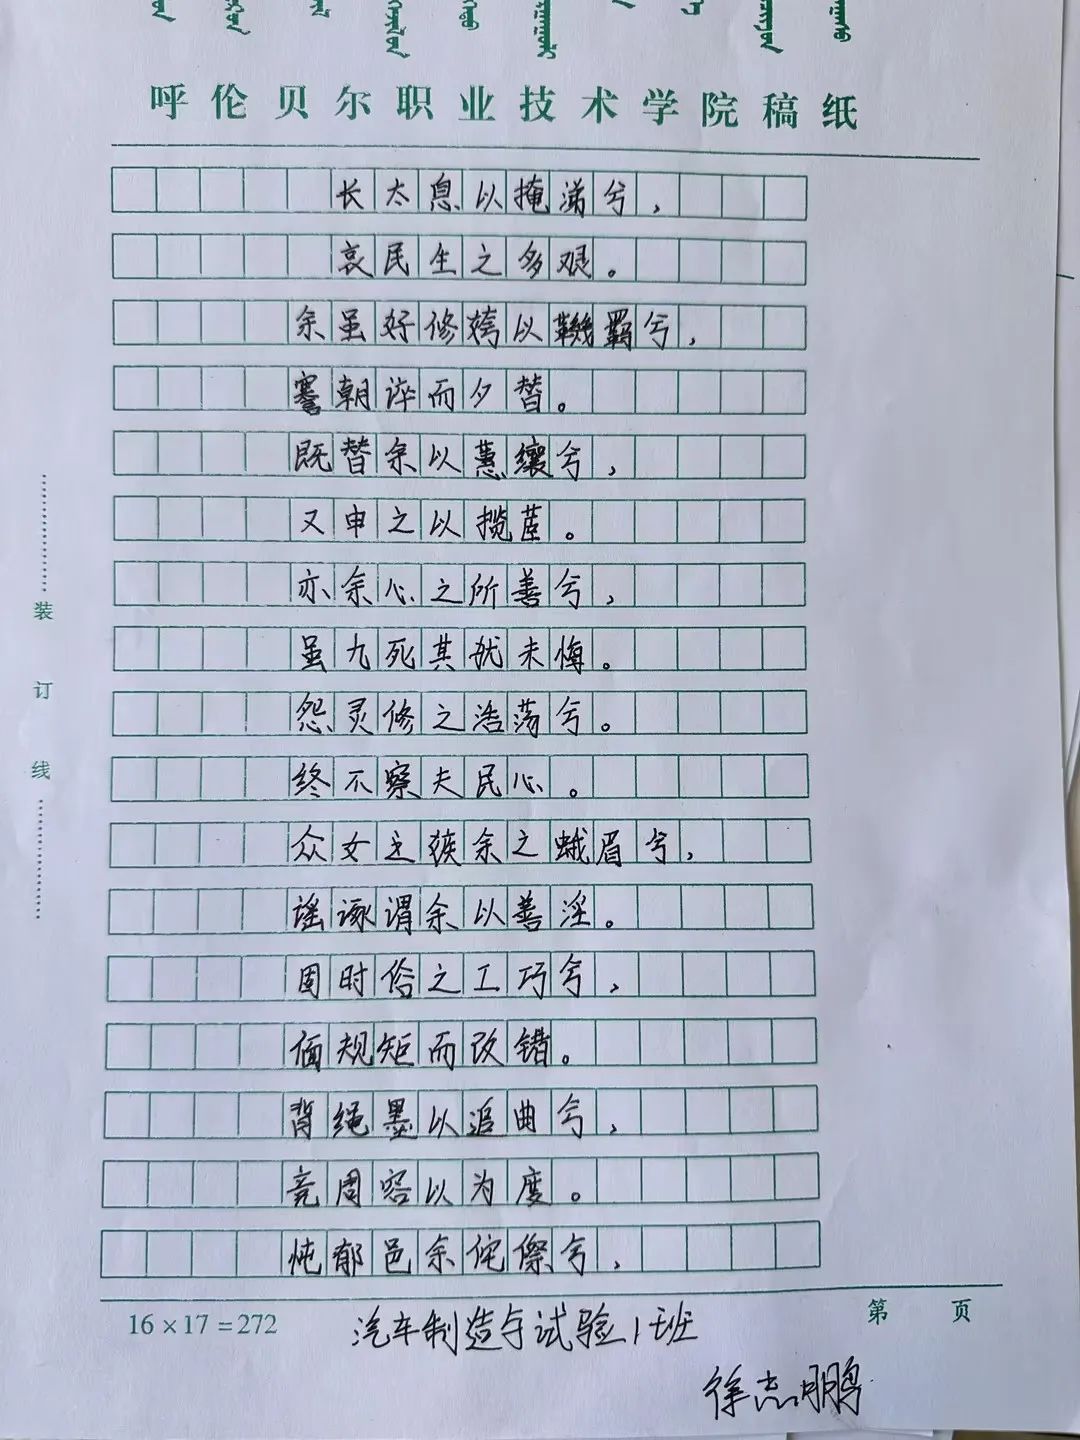 呼伦贝尔职业技术学院稿纸
长太息以掩涕兮，
哀民生之多艰。
余虽好修姱以鞿羁兮，
謇朝谇而夕替。
既替余以蕙纕兮，
又申之以揽茝。
亦余心之所善兮，
虽九死其犹未悔。
怨灵修之浩荡兮。
终不察夫民心。
众女之余之蛾眉兮，
谣诼谓余以善淫。
固时俗之工巧兮，
偭规矩而改错。
背绳墨以追曲兮，
竞周容以为度。
忳郁邑余侘傺兮，
装订线
16×17=272
第 页
汽车制造与试验1班
徐志鹏